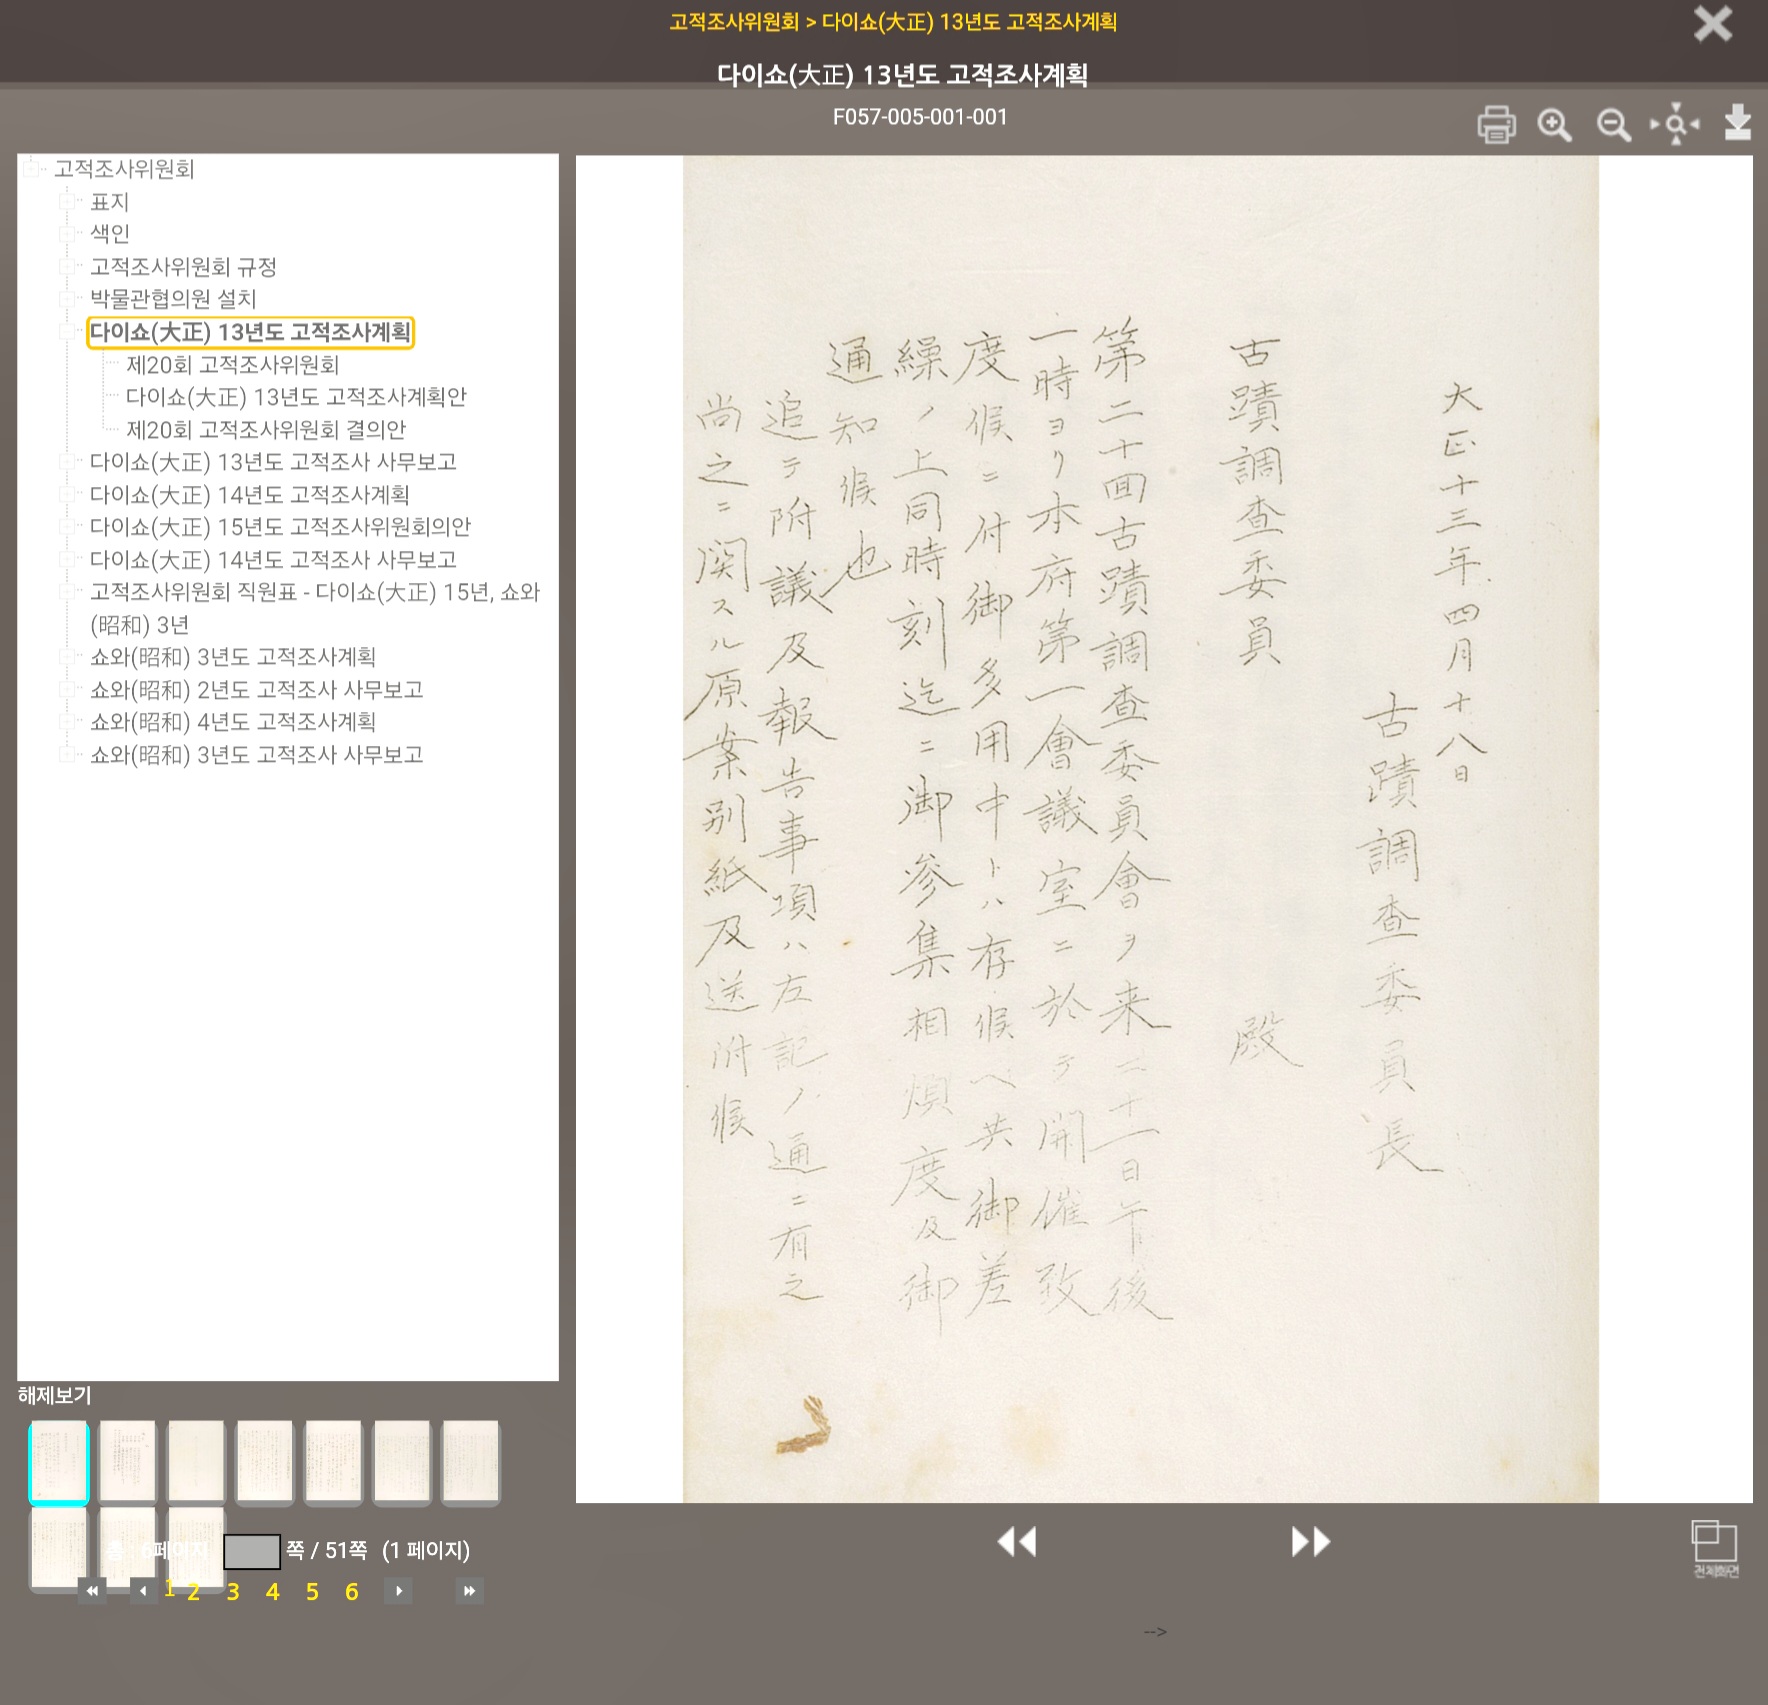 고적조사위원회 > 다이쇼(大正) 13년도 고적조사계획
다이쇼(大正) 13년도 고적조사계획
F057-005-001-001
고적조사위원회
표지
색인
고적조사위원회 규정
박물관협의원 설치
다이쇼(大正) 13년도 고적조사계획
제20회 고적조사위원회
다이쇼(大正) 13년도 고적조사계획안
제20회 고적조사위원회 결의안
다이쇼(大正) 13년도 고적조사 사무보고
다이쇼(大正) 14년도 고적조사계획
다이쇼(大正) 15년도 고적조사위원회의안
다이쇼(大正) 14년도 고적조사 사무보고
고적조사위원회 직원표 - 다이쇼(大正) 15년, 쇼와
(昭和) 3년
쇼와(昭和) 3년도 고적조사계획
쇼와(昭和) 2년도 고적조사 사무보고
쇼와(昭和) 4년도 고적조사계획
쇼와(昭和) 3년도 고적조사 사무보고
大正十三年四月十八日
古蹟調査委員長
古蹟調査委員 殿
第二十回古蹟調査委員會ヲ来二十一日午後
一時ヨリ本府第一會議室ニ於テ開催致
度候ニ付御多用中トハ存候ヘ共御差
繰ノ上同時刻迄ニ御参集相煩度及御
通知候也
追テ附議及報告事項ハ左記ノ通ニ有之
尚之ニ関スル原案別紙及送附候
해제보기
총 : 6페이지 쪽 / 51쪽 (1 페이지)
1 2 3 4 5 6
전체화면
-->